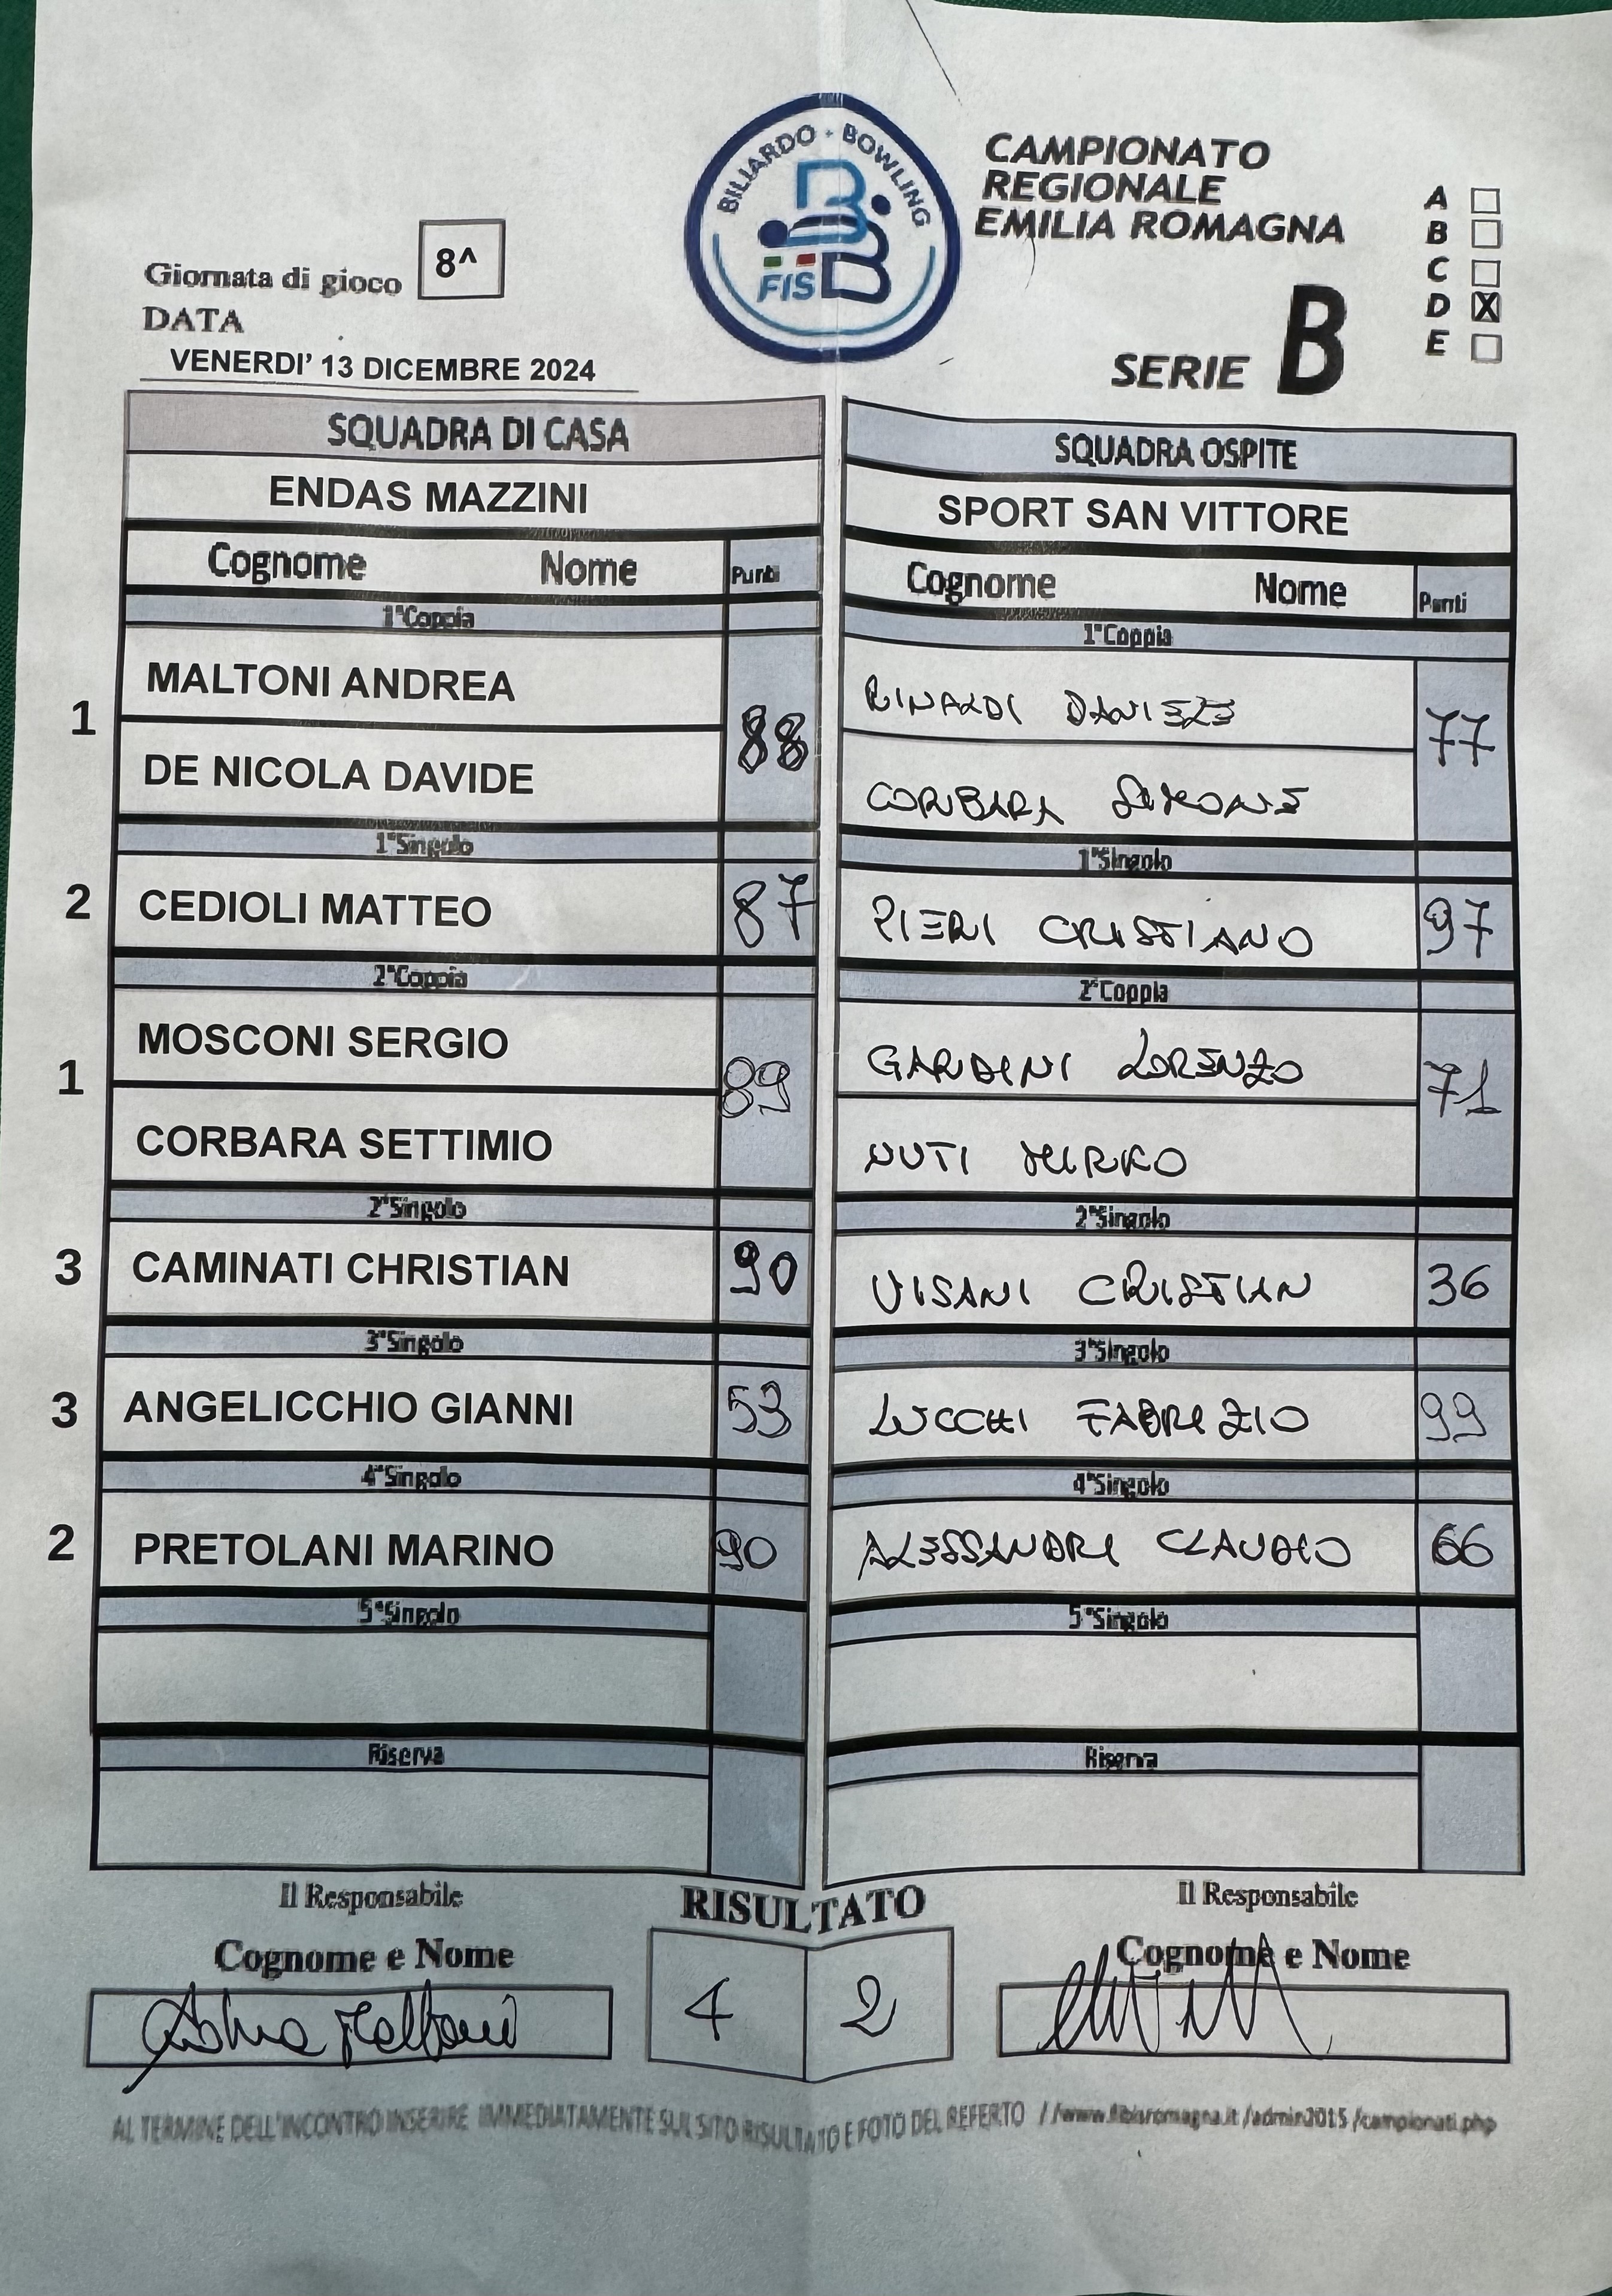 BILIARDO - BOWLING
FISBB
CAMPIONATO
REGIONALE
EMILIA ROMAGNA
A
B
C
D X
E
SERIE B
Giornata di gioco 8^
DATA
VENERDI' 13 DICEMBRE 2024
SQUADRA DI CASA
ENDAS MAZZINI
Cognome Nome Punti
1°Coppia
1 MALTONI ANDREA 88
DE NICOLA DAVIDE
1°Singolo
2 CEDIOLI MATTEO 87
2°Coppia
1 MOSCONI SERGIO 89
CORBARA SETTIMIO
2°Singolo
3 CAMINATI CHRISTIAN 90
3°Singolo
3 ANGELICCHIO GIANNI 53
4°Singolo
2 PRETOLANI MARINO 90
5°Singolo
Riserva
SQUADRA OSPITE
SPORT SAN VITTORE
Cognome Nome Punti
1°Coppia
RINALDI DANIELE 77
CORBARA SIMONE
1°Singolo
PIERI CRISTIANO 97
2°Coppia
GARDINI LORENZO 71
NUTI MIRKO
2°Singolo
VISANI CRISTIAN 36
3°Singolo
LUCCHI FABRIZIO 99
4°Singolo
ALESSANDRI CLAUDIO 66
5°Singolo
Riserva
Il Responsabile
Cognome e Nome
RISULTATO
4 2
Il Responsabile
Cognome e Nome
AL TERMINE DELL'INCONTRO INSERIRE IMMEDIATAMENTE SUL SITO RISULTATO E FOTO DEL REFERTO //www.fibisromagna.it/admin2015/campionati.php